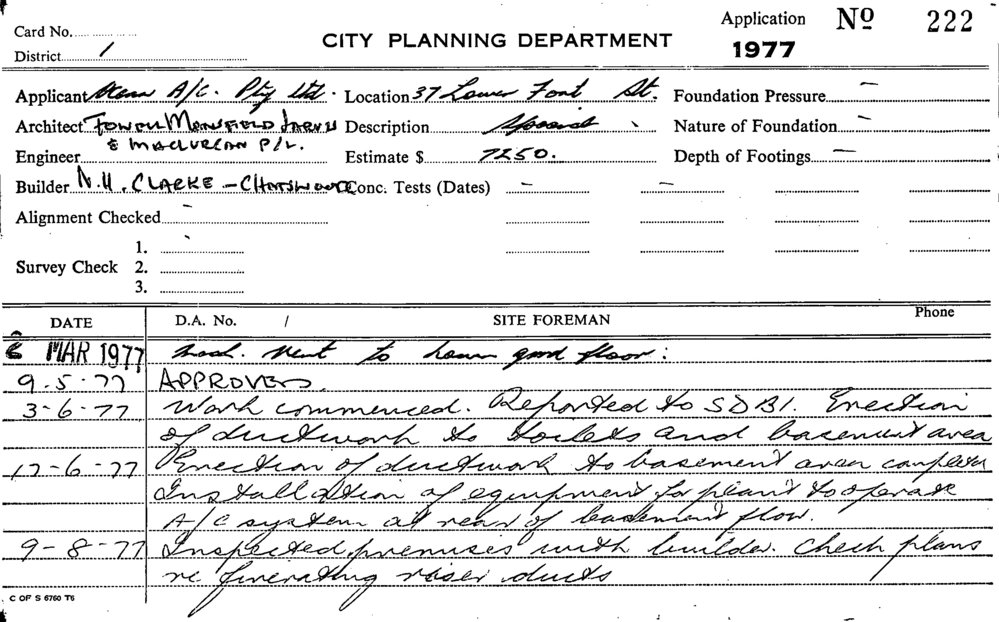 Card No.
Application Nº 222
District 1
CITY PLANNING DEPARTMENT
1977
Applicant A/C. Pty Ltd. Location 37 Lower Fort St. Foundation Pressure –
Architect FOWELL MANSFIELD JARVIS Description Nature of Foundation –
& MACLURCAN P/L.
Engineer Estimate $ 7250. Depth of Footings –
Builder N.H. CLARKE – CHATSWOOD Conc. Tests (Dates) – –
Alignment Checked –
1.
Survey Check 2.
3.
DATE D.A. No. / SITE FOREMAN Phone
MAR 1977 Mech. Vent to lower grnd floor:
9-5-77 APPROVED.
3-6-77 Work commenced. Reported to SDBI. Erection
of ductwork to toilets and basement area
17-6-77 Erection of ductwork to basement area complete
Installation of equipment for plant to operate
A/C system at rear of basement flow.
9-8-77 Inspected premises with builder. Check plans
re riser ducts
C OF S 6760 T6